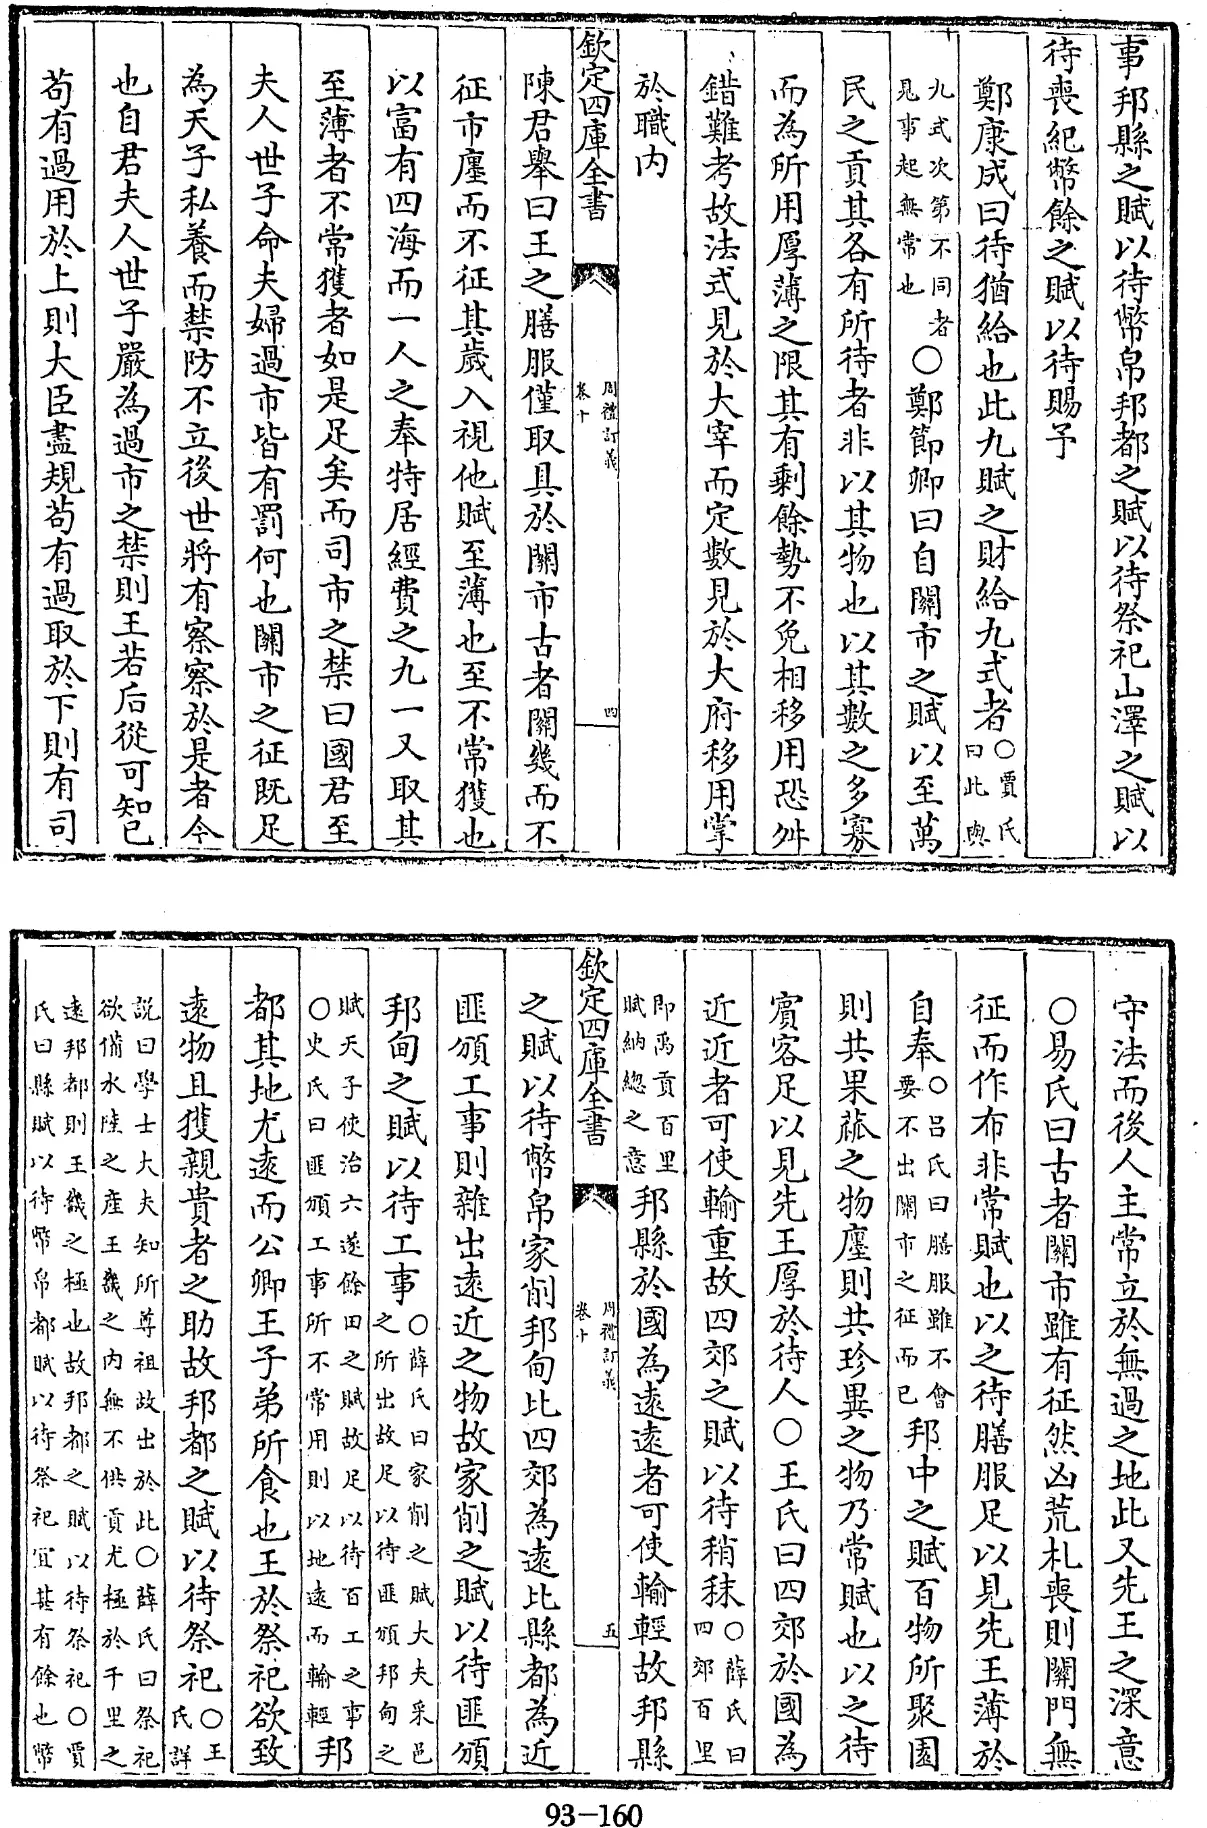 事邦縣之賦以待幣帛邦都之賦以待祭祀山澤之賦以
待喪紀幣餘之賦以待賜予
鄭康成曰待猶給也此九賦之財給九式者○賈氏曰此與
九式次第不同者見事起無常也○鄭節卿曰自關市之賦以至萬
民之貢其各有所待者非以其物也以其數之多寡
而為所用厚薄之限其有剩餘勢不免相移用恐舛
錯難考故法式見於大宰而定數見於大府移用掌
於職内
欽定四庫全書 周禮訂義 卷十 四
陳君舉曰王之膳服僅取具於關市古者關幾而不
征市廛而不征其歲入視他賦至薄也至不常獲也
以富有四海而一人之奉特居經費之九一又取其
至薄者不常獲者如是足矣而司市之禁曰國君至
夫人世子命夫婦過市皆有罰何也關市之征既足
為天子私養而禁防不立後世將有察察於是者令
也自君夫人世子嚴為過市之禁則王若后從可知已
苟有過用於上則大臣盡規苟有過取於下則有司
守法而後人主常立於無過之地此又先王之深意
○易氏曰古者關市雖有征然凶荒札喪則關門無
征而作布非常賦也以之待膳服足以見先王薄於
自奉○呂氏曰膳服雖不會要不出關市之征而已邦中之賦百物所聚園
則共果蓏之物廛則共珍異之物乃常賦也以之待
賓客足以見先王厚於待人○王氏曰四郊於國為
近近者可使輸重故四郊之賦以待稍秣○薛氏曰四郊百里
即禹貢百里賦納緫之意邦縣於國為遠遠者可使輸輕故邦縣
欽定四庫全書 周禮訂義 卷十 五
之賦以待幣帛家削邦甸比四郊為遠比縣都為近
匪頒工事則雜出遠近之物故家削之賦以待匪頒
邦甸之賦以待工事○薛氏曰家削之賦大夫采邑之所出故足以待匪頒邦甸之
賦天子使治六遂餘田之賦故足以待百工之事○史氏曰匪頒工事所不常用則以地遠而輸輕邦
都其地尤遠而公卿王子弟所食也王於祭祀欲致
遠物且獲親貴者之助故邦都之賦以待祭祀○王氏詳
説曰學士大夫知所尊祖故出於此○薛氏曰祭祀欲備水陸之產王畿之内無不供貢尤極於千里之
遠邦都則王畿之極也故邦都之賦以待祭祀○賈氏曰縣賦以待幣帛都賦以待祭祀宜其有餘也幣
93-160